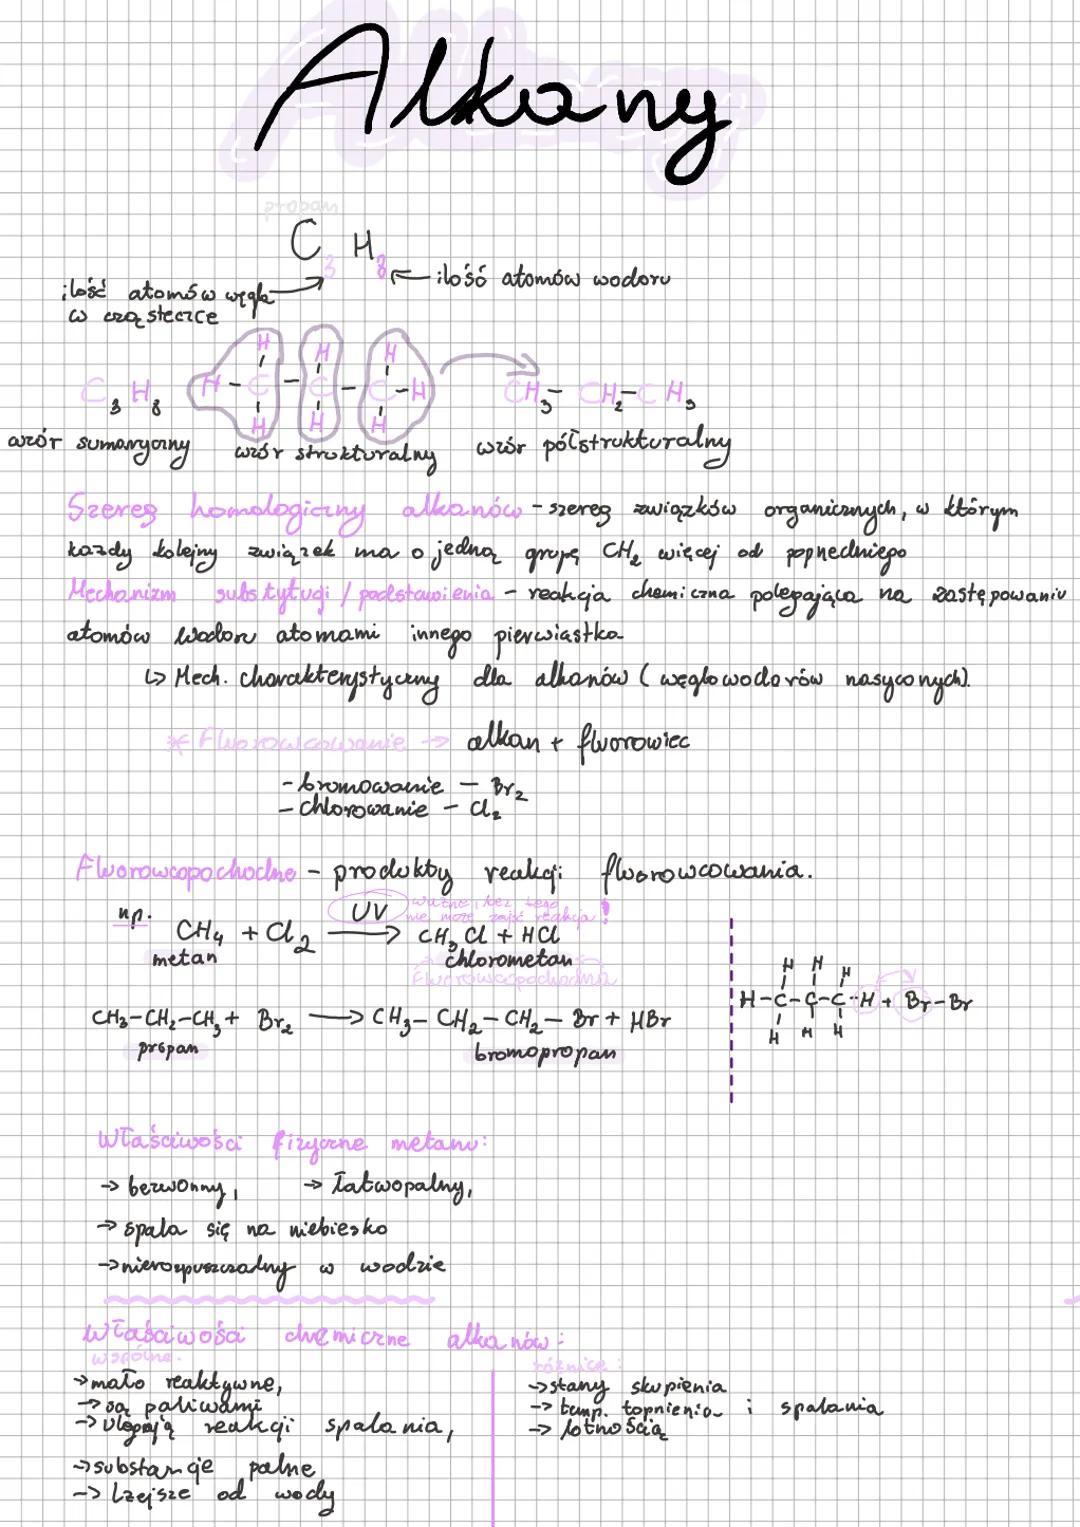 Alkany
propan
C3H8
ilość atomów wodoru
ilość atomów węgla
w cząsteczce
H H H
C3H8 H-C-C-C-H CH3-CH2-CH3
H H H
wzór sumaryczny wzór strukturalny wzór półstrukturalny
Szereg homologiczny alkanów - szereg związków organicznych, w którym
każdy kolejny związek ma o jedną grupę CH2 więcej od poprzedniego
Mechanizm substytucji / podstawienia - reakcja chemiczna polegająca na zastępowaniu
atomów wodoru atomami innego pierwiastka
↳ Mech. charakterystyczny dla alkanów (węglowodorów nasyconych).
* Fluorowcowanie → alkan + fluorowiec
- bromowanie - Br2
- chlorowanie - Cl2
Fluorowcopochodne - produkty reakcji fluorowcowania.
np.
UV ważne, bez tego
nie może zajść reakcja!
CH4 + Cl2 → CH3Cl + HCl
metan chlorometan
Fluorowcopochodna
H H H
H-C-C-C-H + Br-Br
H H H
CH3-CH2-CH3 + Br2 → CH3-CH2-CH2-Br + HBr
propan bromopropan
Właściwości fizyczne metanu:
→ bezwonny, → łatwopalny,
→ spala się na niebiesko
→ nierozpuszczadny w wodzie
Właściwości chemiczne alkanów:
wspólne.
→ mało reaktywne,
→ są paliwami
→ ulegają reakcji spalania,
→ substancje palne
→ lżejsze od wody
różnice:
→ stany skupienia
→ temp. topnienia i spalania
→ lotnością